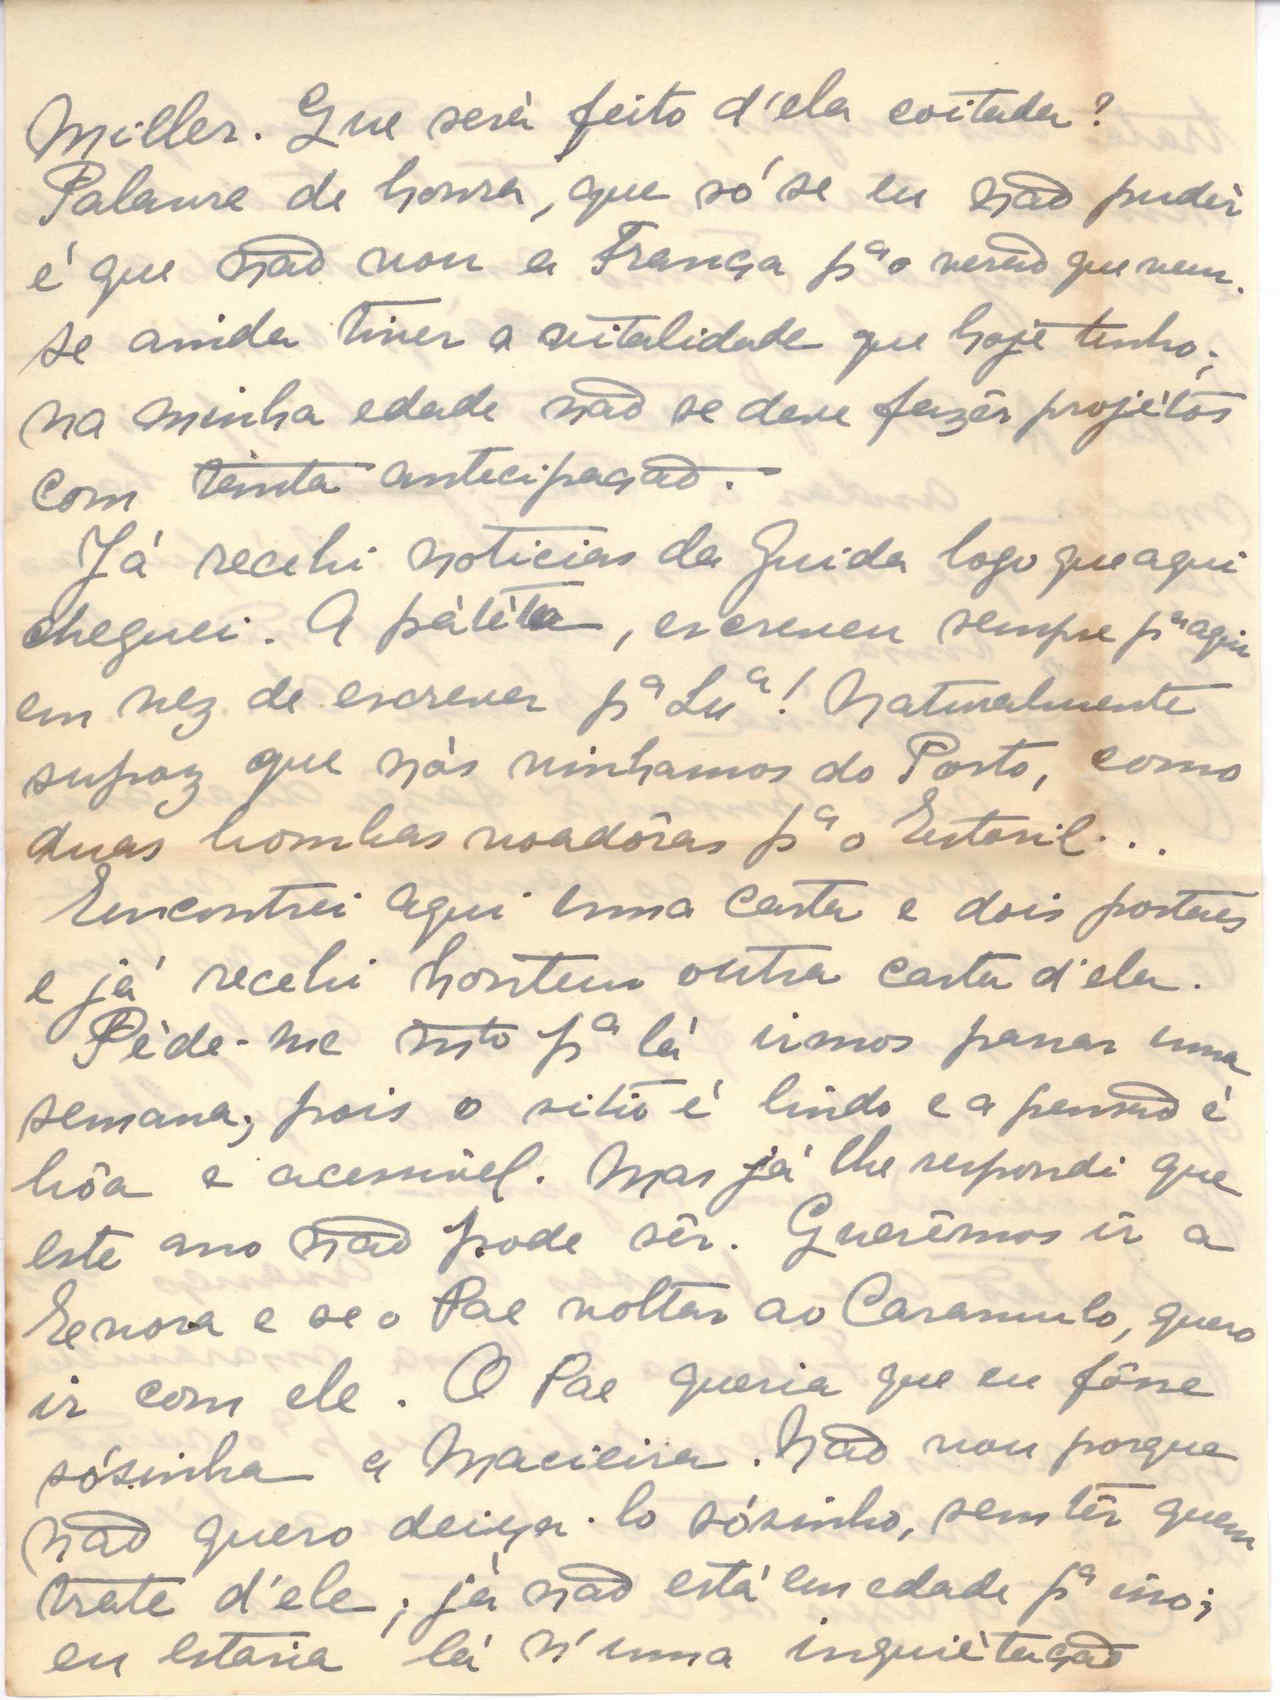 Miller. Que será feito d'ela coitada?
Palavra de honra, que só se eu não pudér
é que não vou a França pª o verão que vem.
se ainda tiver a vitalidade que hoje tenho;
na minha edade não se deve fazêr projétos
com tanta antecipação. -
Já recebi noticias da Guida logo que aqui
cheguei. A patéta, escreveu sempre pª aqui
em vez de escrever pª Luª! Naturalmente
supoz que nós vinhamos do Porto, como
duas bombas voadôras pª o Estoril...
Encontrei aqui uma carta e dois postaes
e já recebi hontem outra carta d'ela.
Péde-me mto pª lá irmos passar uma
semana; pois o sitio é lindo e a pensão é
bôa e acessivel. Mas já lhe respondi que
este ano não pode sêr. Querêmos ir a
Evora e se o Pae voltar ao Caramulo, quero
ir com ele. O Pae queria que eu fôsse
sósinha a Macieira. Não vou porque
não quero deixa-lo sósinho, sem têr quem
trate d'ele; já não está em edade pª isso;
eu estaria lá n'uma inquiétação